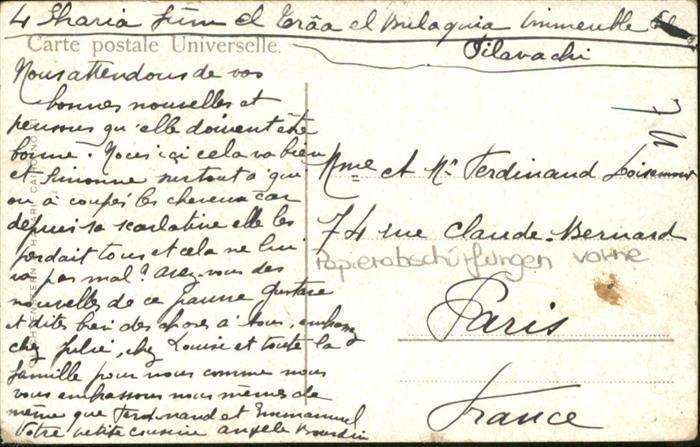 4 Sharia Gum el Trâa el Bulaquia Immeuble
Pilavachi
Carte postale Universelle.
Nous attendons de vos
bonnes nouvelles et
pensons qu'elle doivent être
bonne. Nous ici cela va bien
et Simonne surtout à qui
on à coupés les cheveux car
depuis sa scarlatine elle les
perdait tous et cela ne lui
va pas mal? Avez-vous des
nouvelles de ce pauvre Gustave
et dites bien des choses à tous, embrassez
chez Julie, chez Louise et toute la
famille pour nous comme nous
vous embrassons nous mêmes de
même que Ferdinand et Emmanuel
Votre petite cousine Angèle Bourdin
Mme et Mr Ferdinand
74 rue Claude-Bernard
Papierabschürfungen vorne
Paris
France